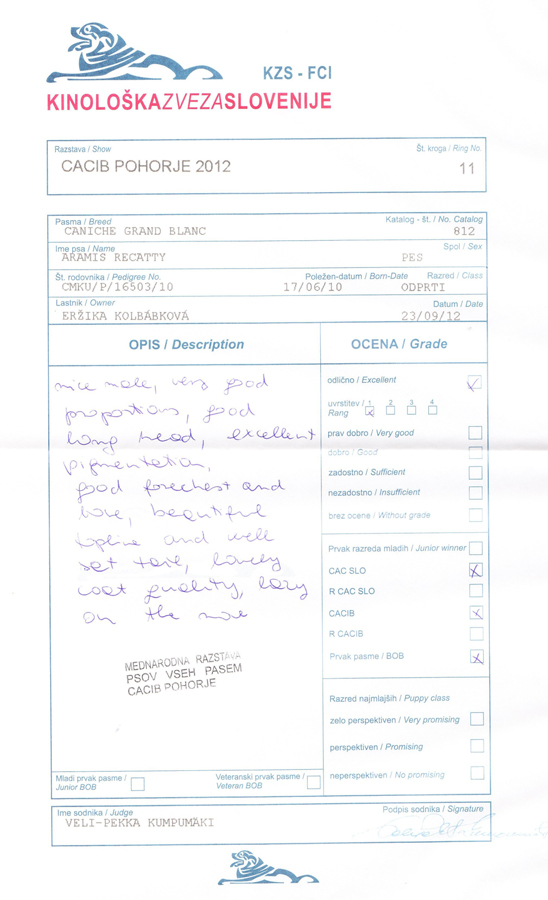 KZS - FCI
KINOLOŠKAZVEZASLOVENIJE
Razstava / Show
Št. kroga / Ring No.
CACIB POHORJE 2012
11
Pasma / Breed
Katalog - št. / No. Catalog
CANICHE GRAND BLANC
812
Ime psa / Name
Spol / Sex
ARAMIS RECATTY
PES
Št. rodovnika / Pedigree No.
Poležen-datum / Born-Date
Razred / Class
CMKU/P/16503/10
17/06/10
ODPRTI
Lastnik / Owner
Datum / Date
ERŽIKA KOLBÁBKOVÁ
23/09/12
OPIS / Description
OCENA / Grade
nice male, very good
proportions, good
long head, excellent
pigmentation,
good forechest and
bone, beautiful
topline and well
set tail, lovely
coat quality, lazy
on the move
MEDNARODNA RAZSTAVA
PSOV VSEH PASEM
CACIB POHORJE
odlično / Excellent
uvrstitev / Rang
1 2 3 4
prav dobro / Very good
dobro / Good
zadostno / Sufficient
nezadostno / Insufficient
brez ocene / Without grade
Prvak razreda mladih / Junior winner
CAC SLO
R CAC SLO
CACIB
R CACIB
Prvak pasme / BOB
Razred najmlajših / Puppy class
zelo perspektiven / Very promising
perspektiven / Promising
neperspektiven / No promising
Mladi prvak pasme /
Junior BOB
Veteranski prvak pasme /
Veteran BOB
Ime sodnika / Judge
Podpis sodnika / Signature
VELI-PEKKA KUMPUMÄKI